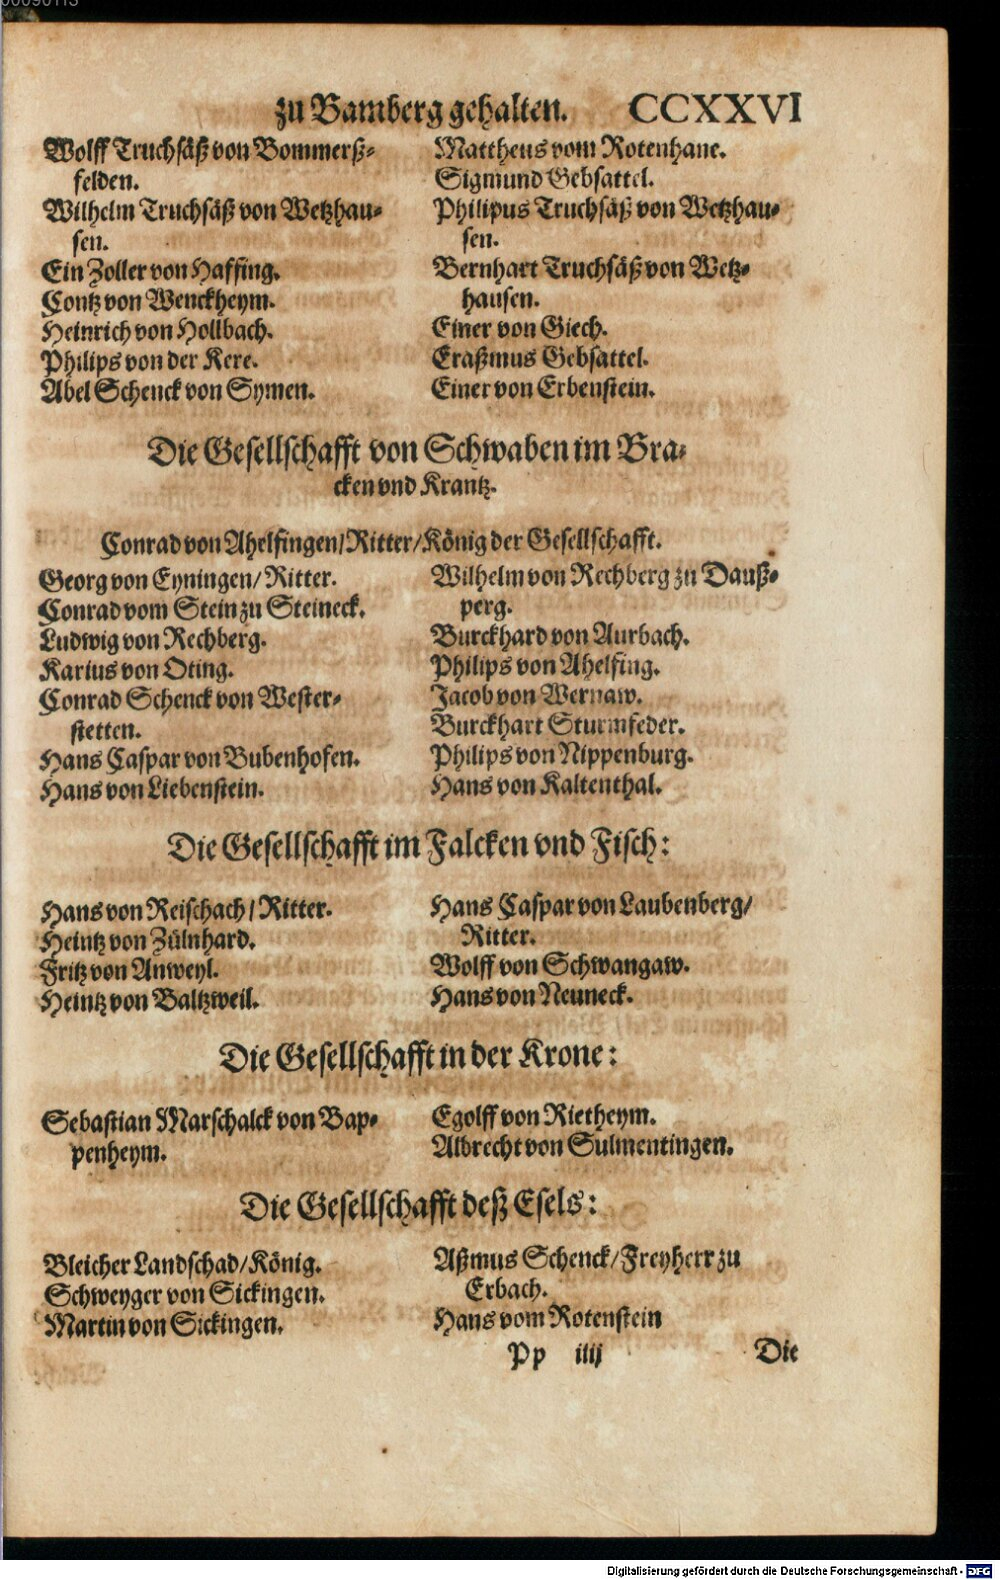 zu Bamberg gehalten. CCXXVI
Wolff Truchsäß von Bommerß-
felden.
Wilhelm Truchsäß von Wetzhau-
sen.
Ein Zoller von Hassing.
Contz von Wenckheym.
Heinrich von Hollbach.
Philips von der Kere.
Abel Schenck von Symen.
Mattheus vom Rotenhane.
Sigmund Gebsattel.
Philipus Truchsäß von Wetzhau-
sen.
Bernhart Truchsäß von Wetz-
hausen.
Einer von Giech.
Eraßmus Gebsattel.
Einer von Erbenstein.
Die Gesellschafft von Schwaben im Bra-
cken vnd Krantz.
Conrad von Ahelfingen/Ritter/König der Gesellschafft.
Georg von Eyningen/Ritter.
Conrad vom Stein zu Steineck.
Ludwig von Rechberg.
Karius von Oting.
Conrad Schenck von Wester-
stetten.
Hans Caspar von Bubenhofen.
Hans von Liebenstein.
Wilhelm von Rechberg zu Dauß-
perg.
Burckhard von Aurbach.
Philips von Ahelfing.
Jacob von Wernaw.
Burckhart Sturmfeder.
Philips von Nippenburg.
Hans von Kaltenthal.
Die Gesellschafft im Falcken vnd Fisch:
Hans von Reischach/Ritter.
Heintz von Zülnhard.
Fritz von Anweyl.
Heintz von Baltzweil.
Hans Caspar von Laubenberg/
Ritter.
Wolff von Schwangaw.
Hans von Neuneck.
Die Gesellschafft in der Krone:
Sebastian Marschalck von Bap-
penheym.
Egolff von Rietheym.
Albrecht von Sulmentingen.
Die Gesellschafft deß Esels:
Bleicher Landschad/König.
Schweyger von Sickingen.
Martin von Sickingen.
Aßmus Schenck/Freyherr zu
Erbach.
Hans vom Rotenstein
Pp iiij Die
Digitalisierung gefördert durch die Deutsche Forschungsgemeinschaft - DFG